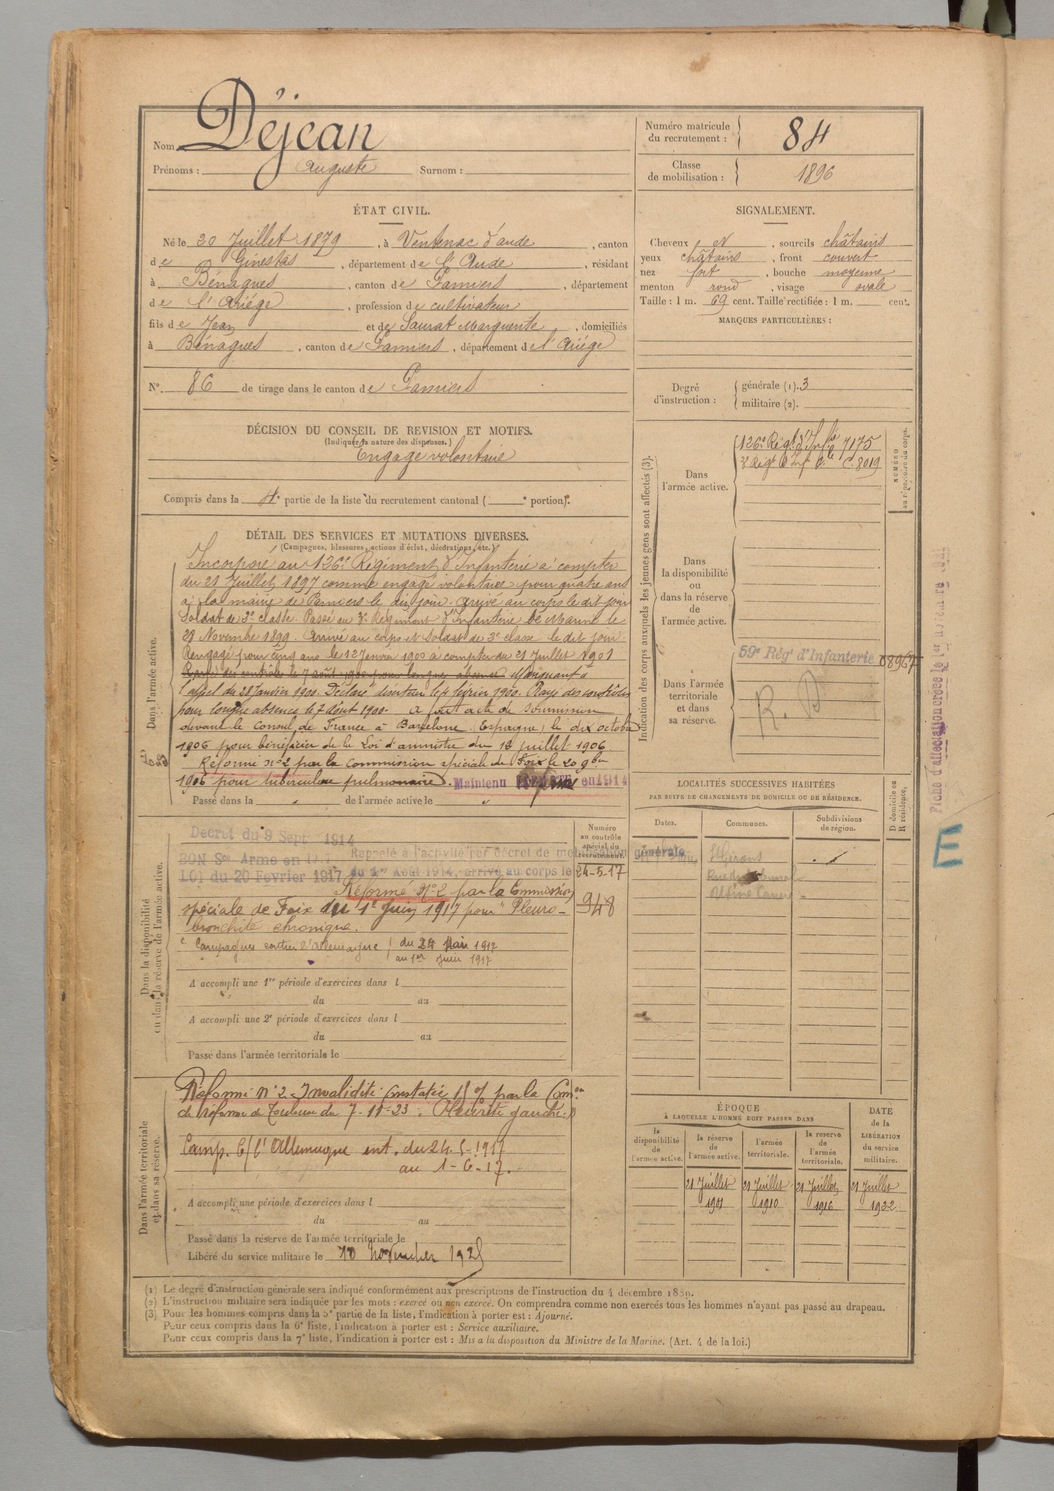 Nom Déjean
Prénoms : Auguste Surnom :
Numéro matricule du recrutement : 84
Classe de mobilisation : 1896
ÉTAT CIVIL.
Né le 20 Juillet 1879, à Ventenac d'aude, canton
de Ginestas, département de l'Aude, résidant
à Bénagues, canton de Pamiers, département
de l'Ariége, profession de cultivateur
fils de Jean et de Saurat Marguerite, domiciliés
à Bénagues, canton de Pamiers, département de l'Ariége
N° 86 de tirage dans le canton de Pamiers
SIGNALEMENT.
Cheveux N, sourcils châtains
yeux châtains, front couvert
nez fort, bouche moyenne
menton rond, visage ovale
Taille : 1 m. 69 cent. Taille rectifiée : 1 m. cent.
MARQUES PARTICULIÈRES :
Degré d'instruction : générale (1). 3
militaire (2).
DÉCISION DU CONSEIL DE REVISION ET MOTIFS.
(Indiquer la nature des dispenses.)
Engagé volontaire
Compris dans la 4e partie de la liste du recrutement cantonal ( portion).
DÉTAIL DES SERVICES ET MUTATIONS DIVERSES.
(Campagnes, blessures, actions d'éclat, décorations, etc.)
Dans l'armée active.
Incorporé au 126e Régiment d'Infanterie à compter
du 21 Juillet 1897 comme engagé volontaire pour quatre ans
à la mairie de Pamiers le dit jour. Arrivé au corps le dit jour
Soldat de 2e classe. Passé au Régiment d'Infanterie de Marine le
29 Novembre 1899. Arrivé au corps et soldat de 2e classe le dit jour
Rengagé pour cinq ans le 12 Janvier 1900 à compter du 21 Juillet 1901
Rayé des contrôles le 7 août 1900 pour longue absence Manquant à
l'appel du 28 Janvier 1900. Déclaré déserteur le 4 février 1900. Rayé des contrôles
pour longue absence le 7 Août 1900. A fait acte de soumission
devant le Consul de France à Barcelone (Espagne) le dix octobre
1906 pour bénéficier de la Loi d'amnistie du 12 juillet 1906
Réformé n°2 par la commission spéciale de Foix le 20 9bre
1906 pour tuberculose pulmonaire. Maintenu en 1914
Passé dans la de l'armée active le
Dans la disponibilité ou dans la réserve de l'armée active.
Décret du 9 Sept 1914
BON Sce Armé en
LOI du 20 Fevrier 1917
Rappelé à l'activité par décret de mobilisation générale
du 1er Août 1914, arrivé au corps le 24-5-17
Réformé N°2 par la Commission
spéciale de Foix du 1er Juin 1917 pour "Pleuro-
bronchite chronique.
Campagnes contre l'Allemagne du 24 Mai 1917
au 1er Juin 1917
Numéro au contrôle spécial du recrutement.
948
A accompli une 1re période d'exercices dans l
du au
A accompli une 2e période d'exercices dans l
du au
Passé dans l'armée territoriale le
Dans l'armée territoriale et dans sa réserve.
Réformé n°2 Invalidité constatée par la Comon
de Réforme de Toulouse du 7-11-23.
Camp. C/ l'Allemagne int. du 24-5-1917
au 1-6-17.
A accompli une période d'exercices dans l
du au
Passé dans la réserve de l'armée territoriale le
Libéré du service militaire le 10 novembre 192
Indication des corps auxquels les jeunes gens sont affectés (3).
NUMÉRO au répertoire du corps.
Dans l'armée active.
126e Régt d'Infie 7175
Régt d'Inf 8019
Dans la disponibilité ou dans la réserve de l'armée active.
Dans l'armée territoriale et dans sa réserve.
59e Rég' d'Infanterie 08967
R. D
LOCALITÉS SUCCESSIVES HABITÉES
PAR SUITE DE CHANGEMENTS DE DOMICILE OU DE RÉSIDENCE.
Dates. Communes. Subdivisions de région. D domicile ou R résidence.
St Girons
ÉPOQUE
À LAQUELLE L'HOMME DOIT PASSER DANS
la disponibilité de l'armée active. la réserve de l'armée active. l'armée territoriale. la réserve de l'armée territoriale. DATE de la LIBÉRATION du service militaire.
21 Juillet 1901 21 Juillet 1910 21 Juillet 1916 21 Juillet 1922
E
(1) Le degré d'instruction générale sera indiqué conformément aux prescriptions de l'instruction du 4 décembre 1889.
(2) L'instruction militaire sera indiquée par les mots : exercé ou non exercé. On comprendra comme non exercés tous les hommes n'ayant pas passé au drapeau.
(3) Pour les hommes compris dans la 5e partie de la liste, l'indication à porter est : Ajourné.
Pour ceux compris dans la 6e liste, l'indication à porter est : Service auxiliaire.
Pour ceux compris dans la 7e liste, l'indication à porter est : Mis à la disposition du Ministre de la Marine. (Art. 4 de la loi.)